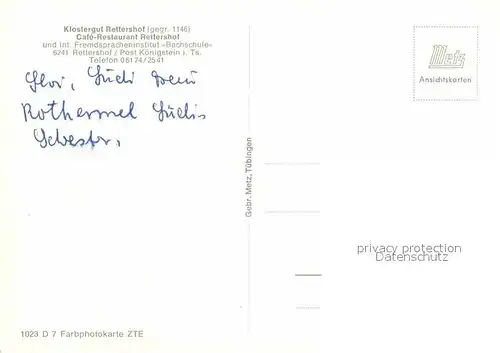 Klostergut Rettershof (gegr. 1146)
Café-Restaurant Rettershof
und int. Fremdspracheninstitut »Bachschule«
6241 Rettershof / Post Königstein i. Ts.
Telefon 06174/2541
Rothermel
Metz
Ansichtskarten
Gebr. Metz, Tübingen
privacy protection
Datenschutz
1023 D 7 Farbphotokarte ZTE